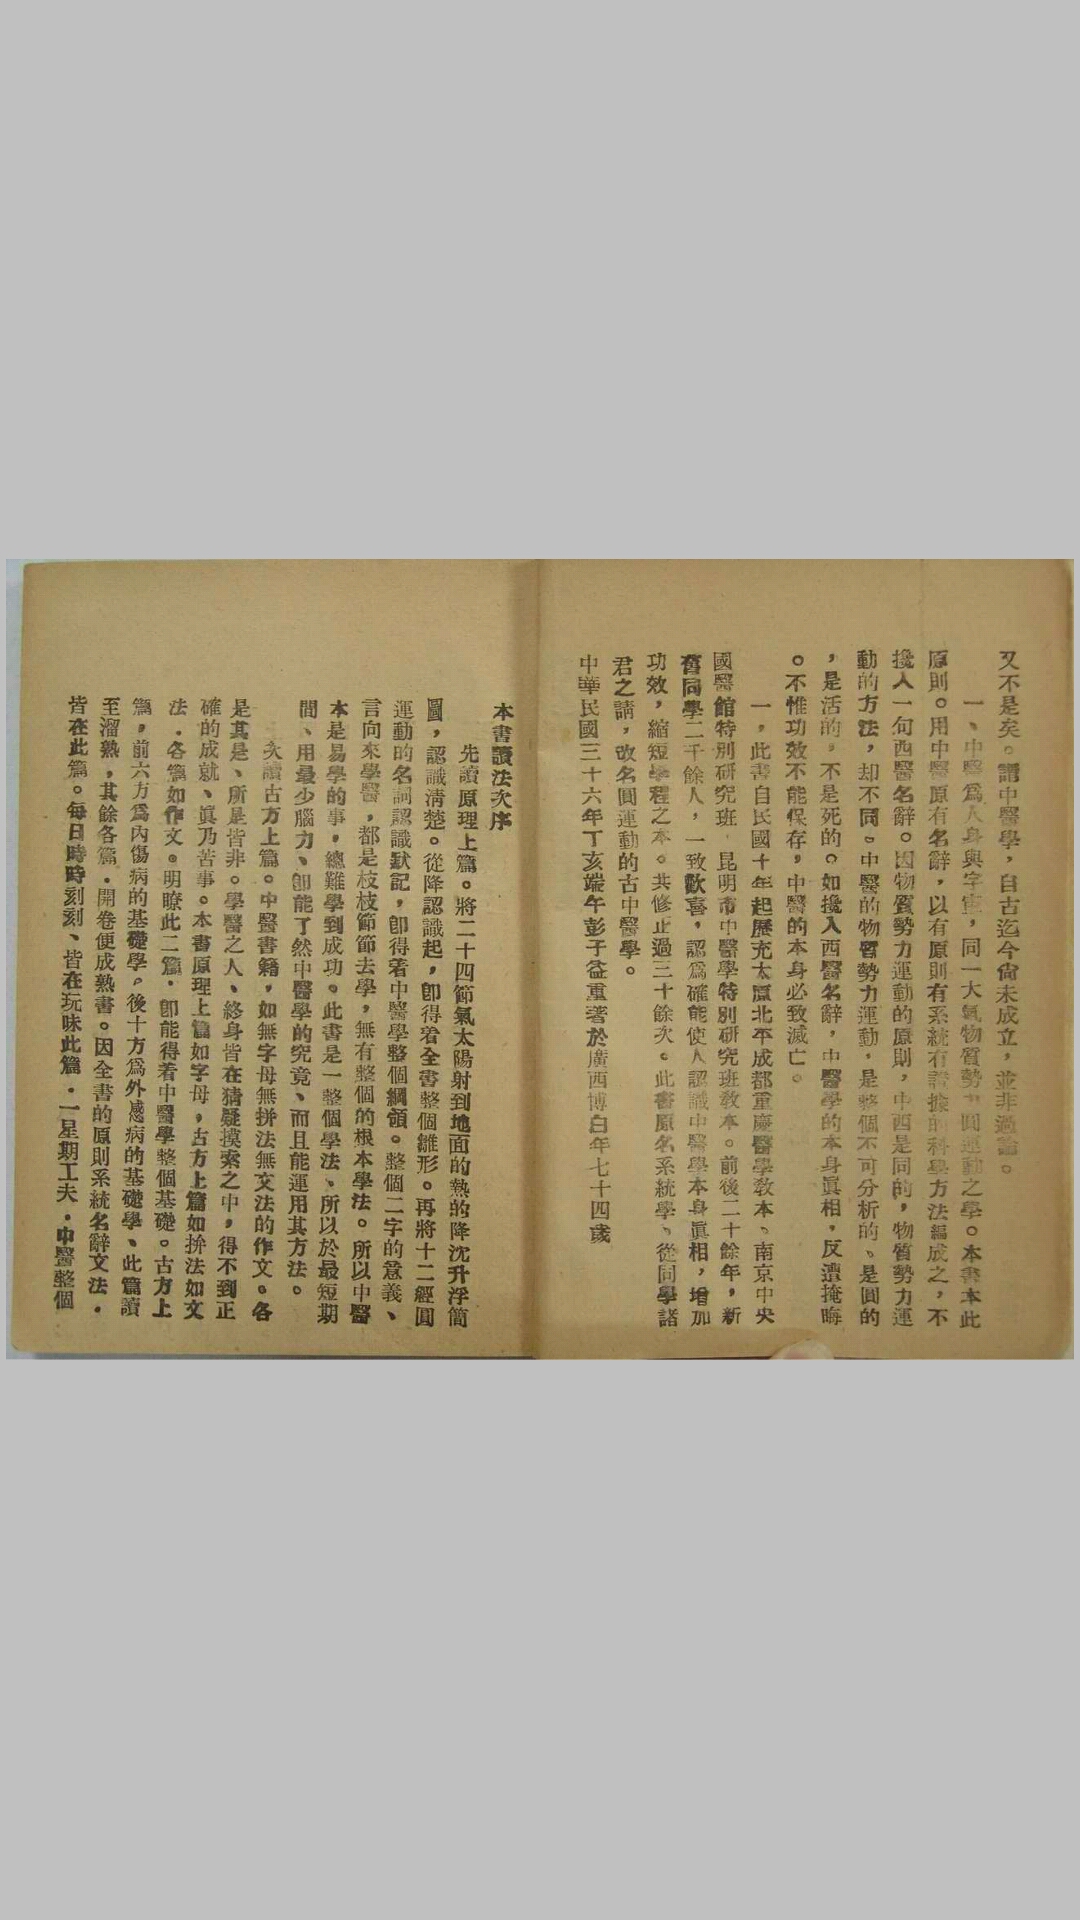 又不是矣。謂中醫學，自古迄今尙未成立，並非過論。
一、中醫爲人身與宇宙，同一大氣物質勢力圓運動之學。本書本此
原則。用中醫原有名辭，以有原則有系統有證據的科學方法編成之，不
攙入一句西醫名辭。因物質勢力運動的原則，中西是同的，物質勢力運
動的方法，却不同。中醫的物質勢力運動，是整個不可分析的、是圓的
，是活的，不是死的。如攙入西醫名辭，中醫學的本身眞相，反遭掩晦
。不惟功效不能保存，中醫的本身必致滅亡。
一，此書自民國十年起歷充太原北平成都重慶醫學敎本、南京中央
國醫館特別硏究班 昆明市中醫學特別硏究班敎本。前後二十餘年，新
舊同學二千餘人，一致歡喜，認爲確能使人認識中醫學本身眞相，增加
功效，縮短學程之本。共修正過三十餘次。此書原名系統學、從同學諸
君之請，改名圓運動的古中醫學。
中華民國三十六年丁亥端午彭子益重著於廣西博白年七十四歲
本書讀法次序
先讀原理上篇。將二十四節氣太陽射到地面的熱的降沈升浮簡
圖，認識清楚。從降認識起，卽得着全書整個雛形。再將十二經圓
運動的名詞認識默記，卽得着中醫學整個綱領。整個二字的意義、
言向來學醫，都是枝枝節節去學，無有整個的根本學法。所以中醫
本是易學的事，總難學到成功。此書是一整個學法、所以於最短期
間、用最少腦力、卽能了然中醫學的究竟、而且能運用其方法。
次讀古方上篇。中醫書籍，如無字母無拼法無文法的作文。各
是其是、所是皆非。學醫之人、終身皆在猜疑摸索之中，得不到正
確的成就、眞乃苦事。本書原理上篇如字母，古方上篇如拚法如文
法．各篇如作文。明瞭此二篇．卽能得着中醫學整個基礎。古方上
篇，前六方爲內傷病的基礎學。後十方爲外感病的基礎學、此篇讀
至溜熟，其餘各篇．開卷便成熟書。因全書的原則系統名辭文法．
皆在此篇。每日時時刻刻、皆在玩味此篇．一星期工夫．中醫整個